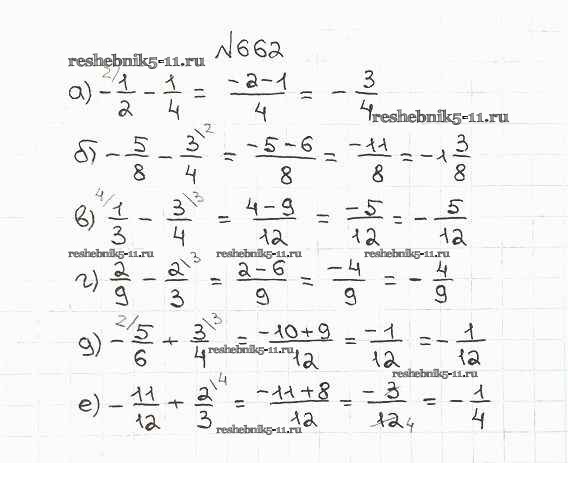 №662
reshebnik5-11.ru
а) -1/2 \ 2 - 1/4 = (-2-1)/4 = -3/4
reshebnik5-11.ru
б) -5/8 - 3/4 \ 2 = (-5-6)/8 = -11/8 = -1 3/8
в) 4/ 1/3 - 3/4 \3 = (4-9)/12 = -5/12 = -5/12
reshebnik5-11.ru reshebnik5-11.ru reshebnik5-11.ru
г) 2/9 - 2/3 \3 = (2-6)/9 = -4/9 = -4/9
д) 2/ -5/6 + 3/4 \3 = (-10+9)/12 = -1/12 = -1/12
reshebnik5-11.ru
reshebnik5-11.ru
е) -11/12 + 2/3 \4 = (-11+8)/12 = -3/12 4 = -1/4
reshebnik5-11.ru